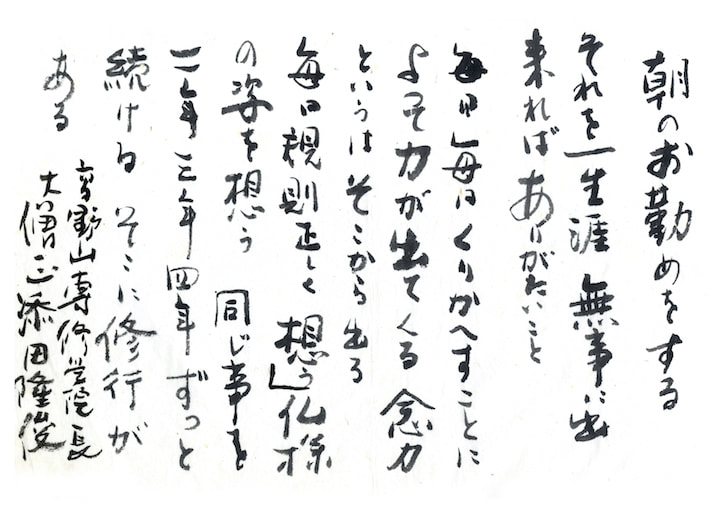 朝のお勤めをする
それを一生涯 無事に出
来ればありがたいこと
毎日毎日くりかへすことに
よって力が出てくる 念力
というは そこから出る
毎日規則正しく 想う 仏様
の姿を想う 同じ事を
二年三年四年ずっと
続ける そこに修行が
ある
高野山専修学院長
大僧正添田隆俊